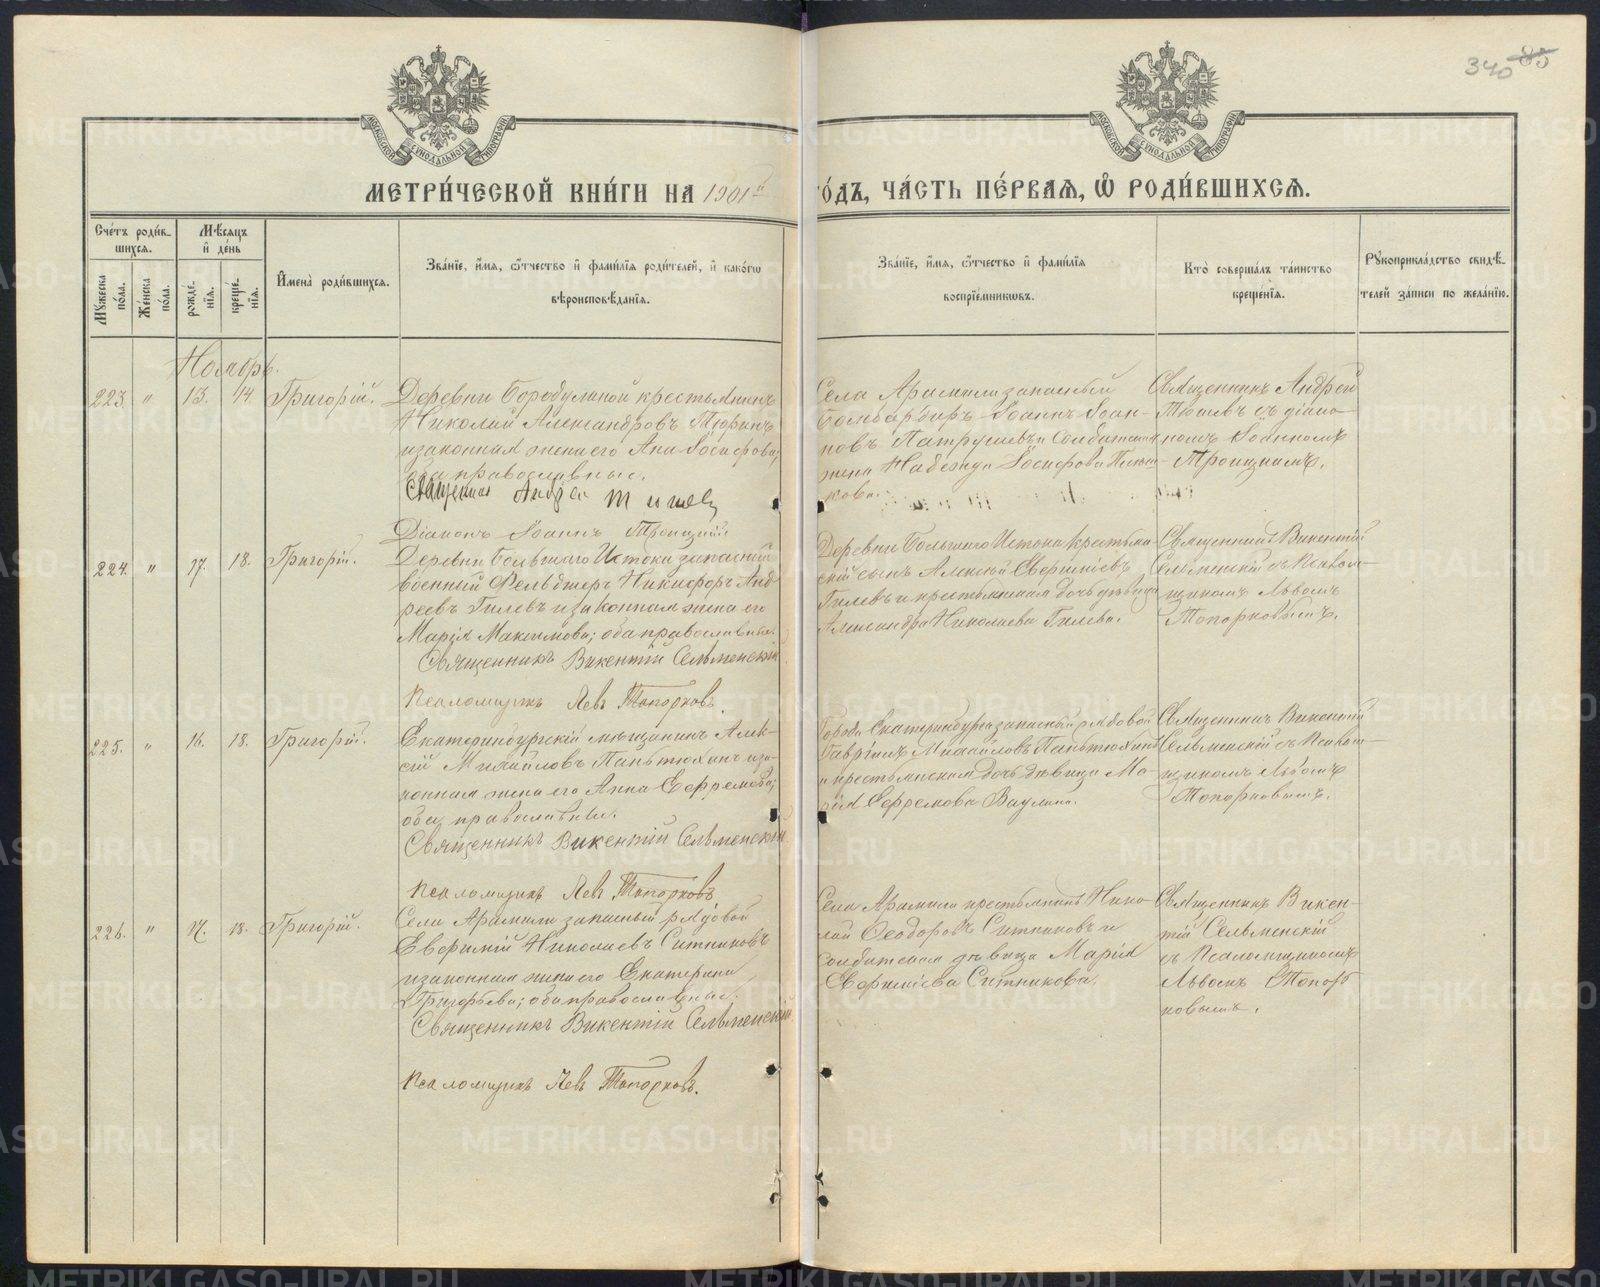 340 85
МОСКОВСКОЙ СѴНОДАЛЬНОЙ ТИПОГРАФІИ
МОСКОВСКОЙ СѴНОДАЛЬНОЙ ТИПОГРАФІИ
МЕТРИ́ЧЕСКОЙ КНИ́ГИ НА 1901й
ГО́ДЪ, ЧА́СТЬ ПЕ́РВАЯ, Ѿ РОДИ́ВШИХСЯ.
Сче́тъ роди́вшихся.
Му́жеска по́ла.
Же́нска по́ла.
Мѣ́сяцъ и де́нь
рожде́нїя.
креще́нїя.
И҆мена̀ роди́вшихся.
Зва́нїе, и҆́мя, ѻ҆́тчество и҆ фами́лїя роди́телей, и҆ како́гѡ
вѣроисповѣ́данїя.
Зва́нїе, и҆́мя, ѻ҆́тчество и҆ фами́лїя
воспрїе́мникѡвъ.
Кто̀ соверша́лъ та́инство
креще́нїя.
Рꙋкоприкла́дство свидѣ́-
телей за́писи по жела́нїю.
Ноябрь.
223. " 13. 14. Григорій.
Деревни Бородулиной крестьянинъ
Николай Александровъ Тюринъ
и законная жена его Анна Іосифова;
оба православные.
Священник Андрей Тишев
Діаконъ Іоаннъ Троицкій
Села Арамили запасный
Бомбардиръ Іоаннъ Іоан-
новъ Патрушевъ и солдатская
жена Надежда Іосифова
кова.
Священникъ Андрей
Тишевъ съ діако-
номъ Іоанномъ
Троицкимъ.
224. " 17. 18. Григорій.
Деревни Большаго Истока запасный
военный Фельдшеръ Никифоръ Анд-
реевъ Гилевъ и законная жена его
Марія Максимова; оба православные.
Священникъ Викентій Сельменскій
Псаломщикъ Левъ Топорковъ.
Деревни Большаго Истока крестьян-
скій сынъ Алексѣй
Гилевъ и крестьянская дочь дѣвица
Александра Николаева Гилева.
Священникъ Викентій
Сельменскій съ Псалом-
щикомъ Львомъ
Топорковымъ.
225. " 16. 18. Григорій.
Екатеринбургскій мѣщанинъ Алек-
сѣй Михайловъ Паньтюхинъ и за-
конная жена его Анна Ефремова;
оба православные.
Священникъ Викентій Сельменскій
Псаломщикъ Левъ Топорковъ
Города Екатеринбурга запасный рядовой
Гавріилъ Михайловъ Паньтюхинъ
и крестьянская дочь дѣвица Ма-
рія Ефремова Ваулина.
Священникъ Викентій
Сельменскій съ Псалом-
щикомъ Львомъ
Топорковымъ.
226. " 17. 18. Григорій.
Села Арамили запасный рядовой
Евфимій Николаевъ Ситниковъ
и законная жена его Екатерина
Григорьева; оба православные.
Священникъ Викентій Сельменскій
Псаломщикъ Левъ Топорковъ.
Села Арамили крестьянинъ Нико-
лай Ѳеодоровъ Ситниковъ и
солдатская дѣвица Марія
Евфиміева Ситникова.
Священникъ Викен-
тій Сельменскій
съ Псаломщикомъ
Львомъ Топор-
ковымъ.
METRIKI.GASO-URAL.RU